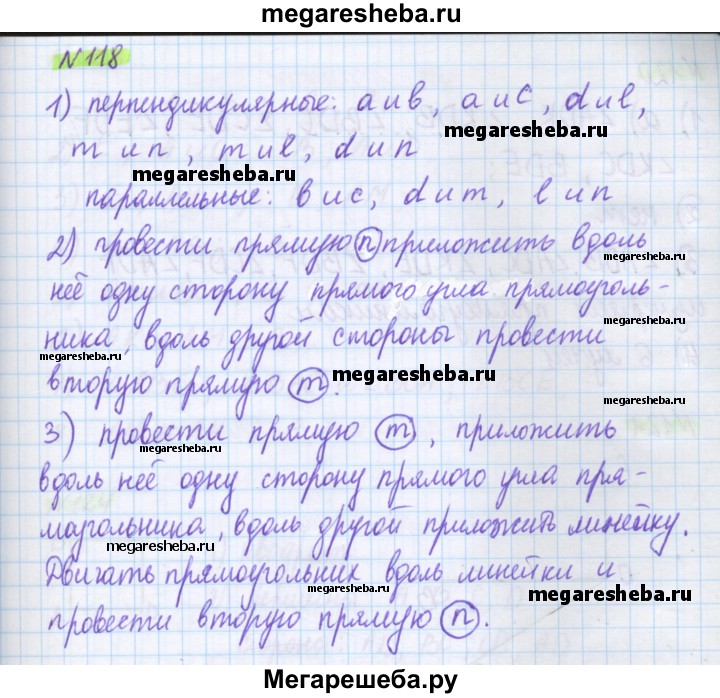 megaresheba.ru
N118
1) перпендикулярные: a и b, a и c, d и l,
megaresheba.ru
m и n, m и l, d и n
megaresheba.ru
параллельные: b и c, d и m, l и n
2) провести прямую n приложить вдоль
неё одну сторону прямого угла прямоуголь-
megaresheba.ru
ника, вдоль другой стороны провести
megaresheba.ru
вторую прямую m.
megaresheba.ru
megaresheba.ru
3) провести прямую m, приложить
вдоль неё одну сторону прямого угла пря-
моугольника, вдоль другой приложить линейку.
megaresheba.ru
megaresheba.ru
Двигать прямоугольник вдоль линейки и
megaresheba.ru
провести вторую прямую n.
Мегарешеба.ру